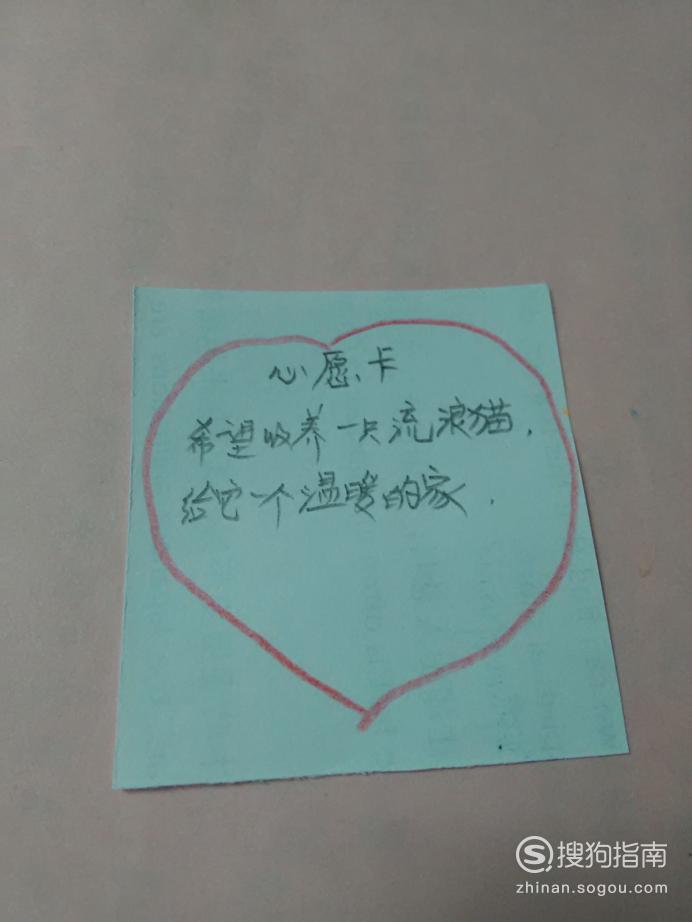 心愿卡
希望收养一只流浪猫,
给它一个温暖的家.
搜狗指南
zhinan.sogou.com